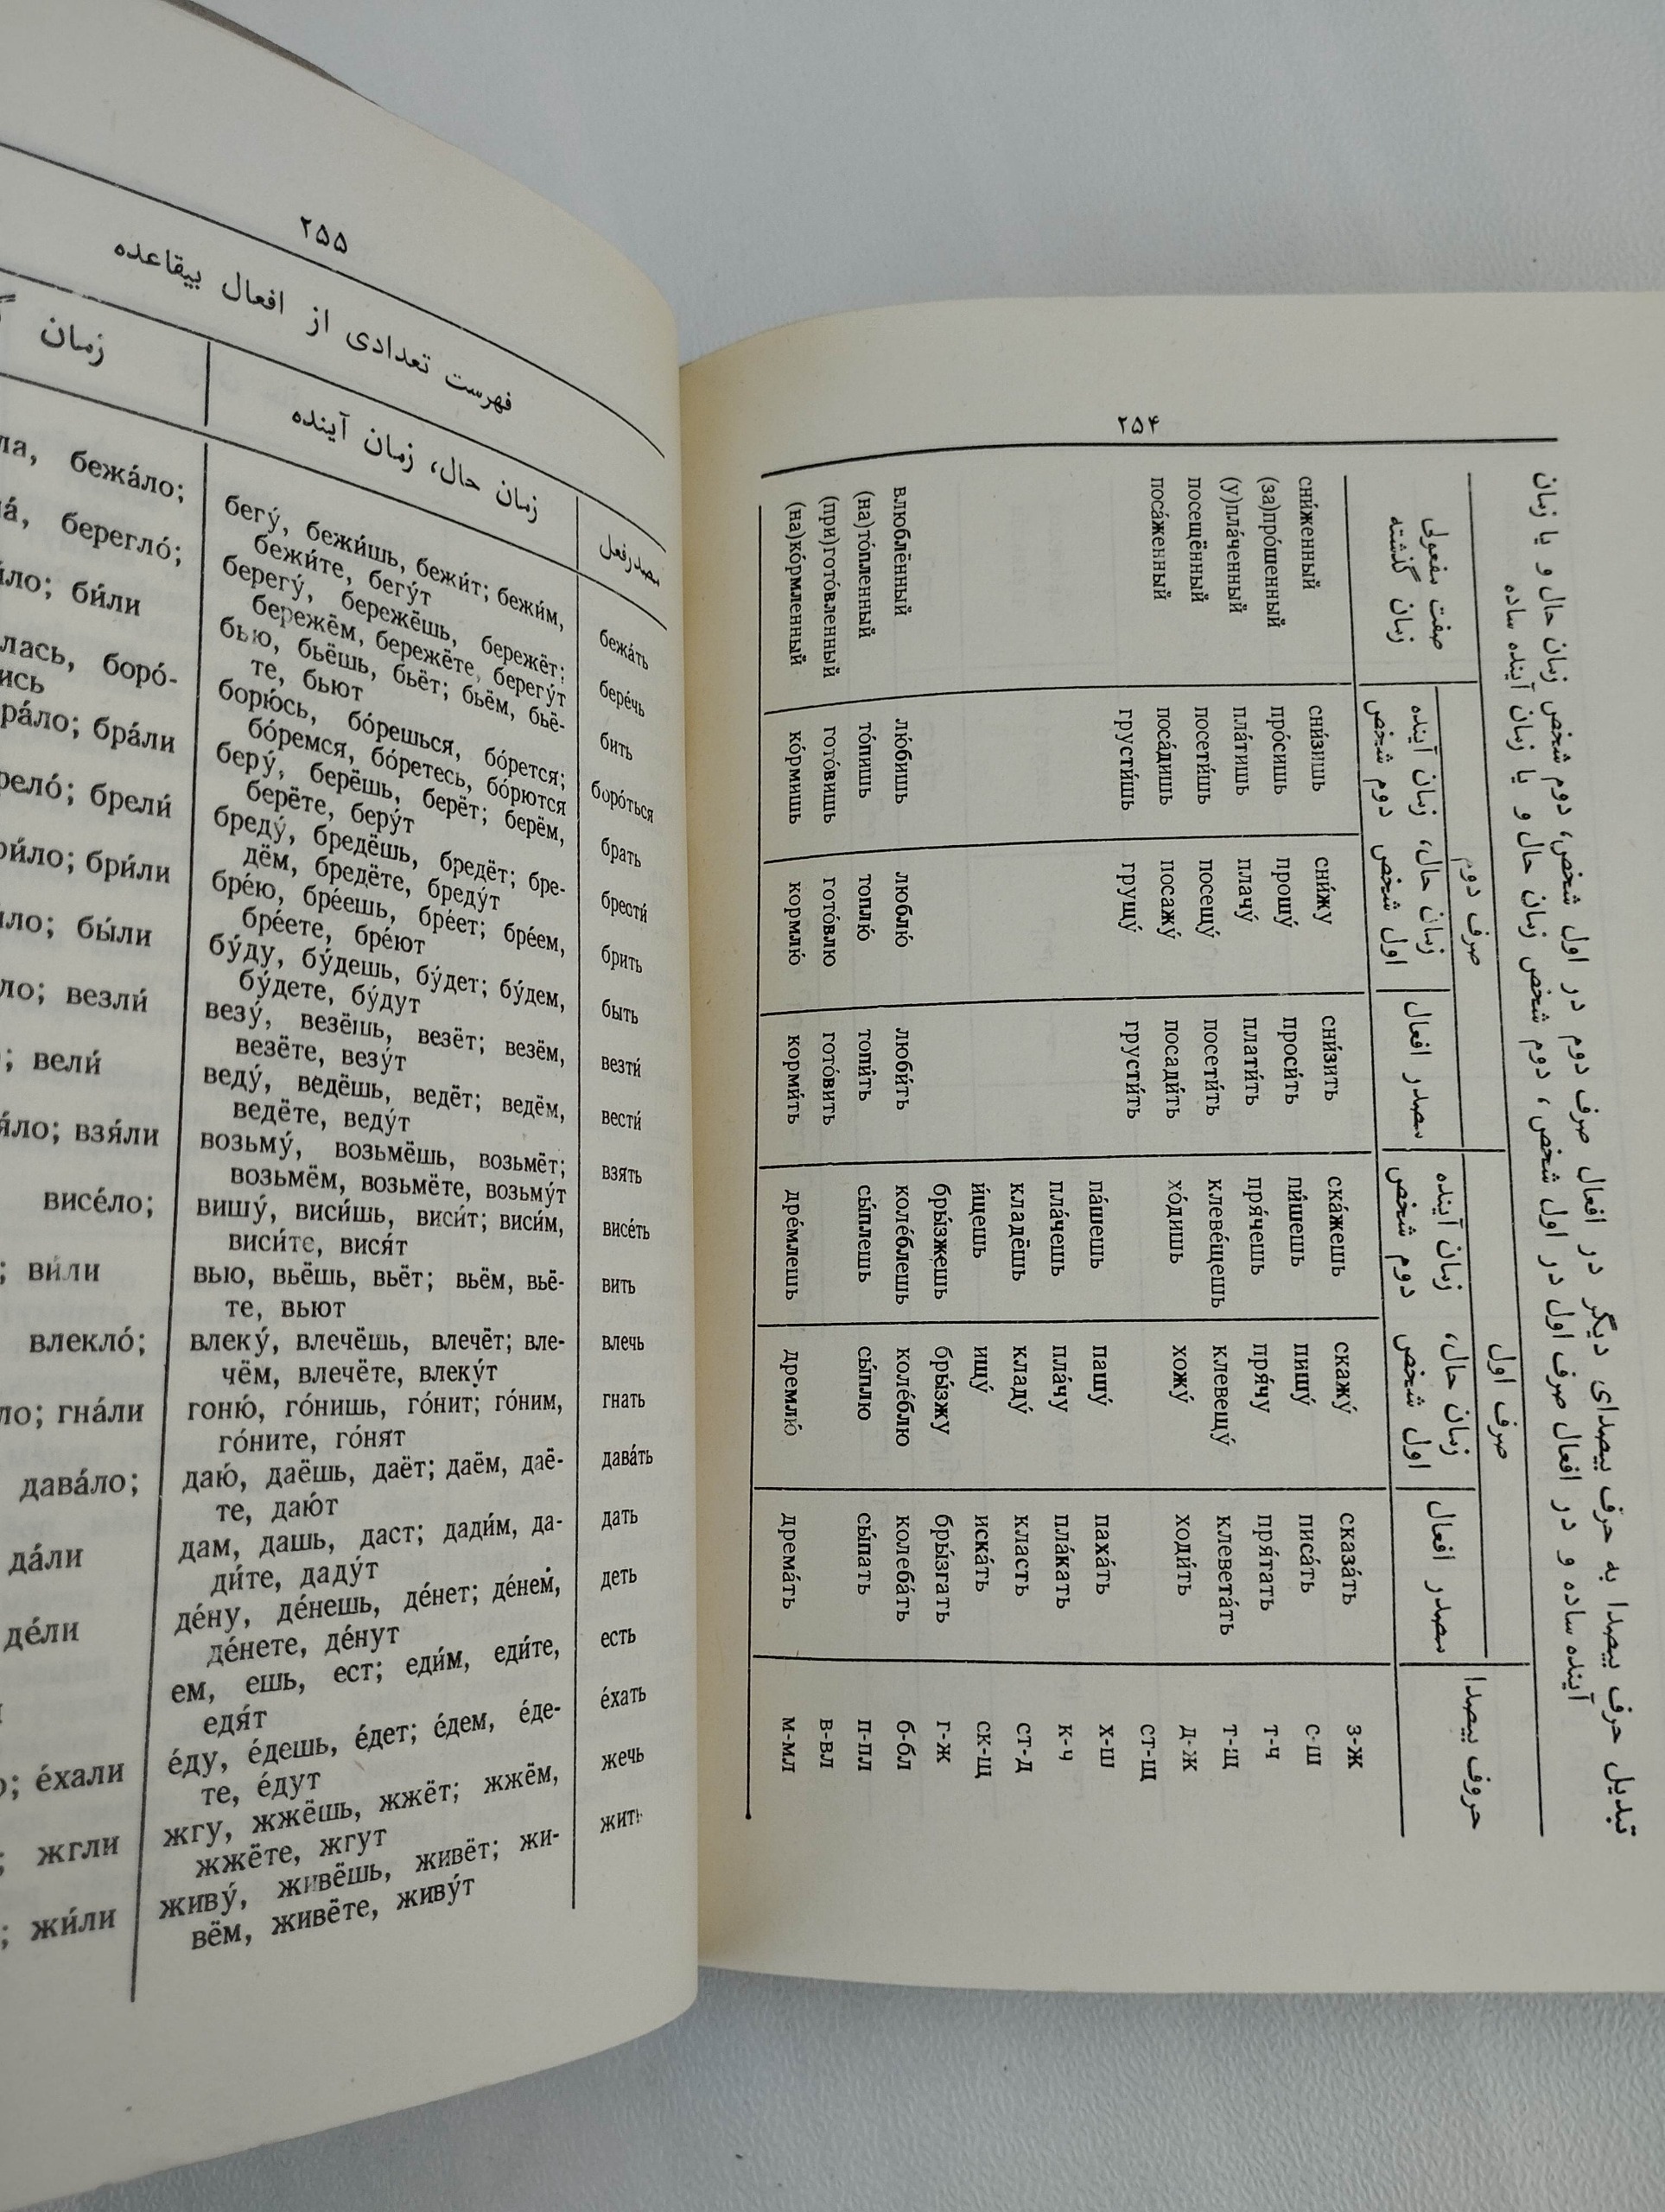 ۲۵۴
تبدیل حرف بیصدا به حرف بیصدای دیگر در افعال صرف دوم در اول شخص، دوم شخص زمان حال و یا زمان
آینده ساده و در افعال صرف اول در اول شخص، دوم شخص زمان حال و یا زمان آینده ساده
حروف بیصدا صرف اول صرف دوم صفت مفعولی زمان گذشته
مصدر افعال زمان حال، زمان آینده مصدر افعال زمان حال، زمان آینده
اول شخص دوم شخص اول شخص دوم شخص
з-ж сказа́ть скажу́ ска́жешь сни́зить сни́жу сни́зишь сни́женный
с-ш писа́ть пишу́ пи́шешь проси́ть прошу́ про́сишь (за)про́шенный
т-ч пря́тать пря́чу пря́чешь плати́ть плачу́ пла́тишь (у)пла́ченный
т-щ клевета́ть клевещу́ клеве́щешь посети́ть посещу́ посети́шь посещённый
д-ж ходи́ть хожу́ хо́дишь посади́ть посажу́ поса́дишь поса́женный
ст-щ грусти́ть грущу́ грусти́шь
х-ш паха́ть пашу́ па́шешь
к-ч пла́кать пла́чу пла́чешь
ст-д класть кладу́ кладёшь
ск-щ иска́ть ищу́ и́щешь
г-ж бры́згать бры́зжу бры́зжешь
б-бл колеба́ть коле́блю коле́блешь люби́ть люблю́ лю́бишь влюблённый
п-пл сы́пать сы́плю сы́плешь топи́ть топлю́ то́пишь (на)то́пленный
в-вл гото́вить гото́влю гото́вишь (при)гото́вленный
м-мл дрема́ть дремлю́ дре́млешь корми́ть кормлю́ ко́рмишь (на)ко́рмленный
۲۵۵
فهرست تعدادی از افعال بیقاعده
مصدر فعل زمان حال، زمان آینده زمان
бежа́ть бегу́, бежи́шь, бежи́т; бежи́м, бежа́ло;
бежи́те, бегу́т
бере́чь берегу́, бережёшь, бережёт; берегло́;
бережём, бережёте, берегу́т
бить бью, бьёшь, бьёт; бьём, бьё- би́ли
те, бьют
боро́ться борю́сь, бо́решься, бо́рется; боро́-
бо́ремся, бо́ретесь, бо́рются
брать беру́, берёшь, берёт; берём, бра́ли
берёте, беру́т
брести́ бреду́, бредёшь, бредёт; бре- брели́
дём, бредёте, бреду́т
брить бре́ю, бре́ешь, бре́ет; бре́ем, бри́ли
бре́ете, бре́ют
быть бу́ду, бу́дешь, бу́дет; бу́дем, бы́ли
бу́дете, бу́дут
везти́ везу́, везёшь, везёт; везём, везли́
везёте, везу́т
вести́ веду́, ведёшь, ведёт; ведём, вели́
ведёте, веду́т
взять возьму́, возьмёшь, возьмёт; взя́ли
возьмём, возьмёте, возьму́т
висе́ть вишу́, виси́шь, виси́т; виси́м, висе́ло;
виси́те, вися́т
вить вью, вьёшь, вьёт; вьём, вьё- ви́ли
те, вьют
влечь влеку́, влечёшь, влечёт; вле- влекло́;
чём, влечёте, влеку́т
гнать гоню́, го́нишь, го́нит; го́ним, гна́ли
го́ните, го́нят
дава́ть даю́, даёшь, даёт; даём, даё- дава́ло;
те, даю́т
дать дам, дашь, даст; дади́м, да- да́ли
ди́те, даду́т
деть де́ну, де́нешь, де́нет; де́нем, де́ли
де́нете, де́нут
есть ем, ешь, ест; еди́м, еди́те,
едя́т
е́хать е́ду, е́дешь, е́дет; е́дем, е́де- е́хали
те, е́дут
жечь жгу, жжёшь, жжёт; жжём, жгли
жжёте, жгут
жить живу́, живёшь, живёт; жи- жи́ли
вём, живёте, живу́т